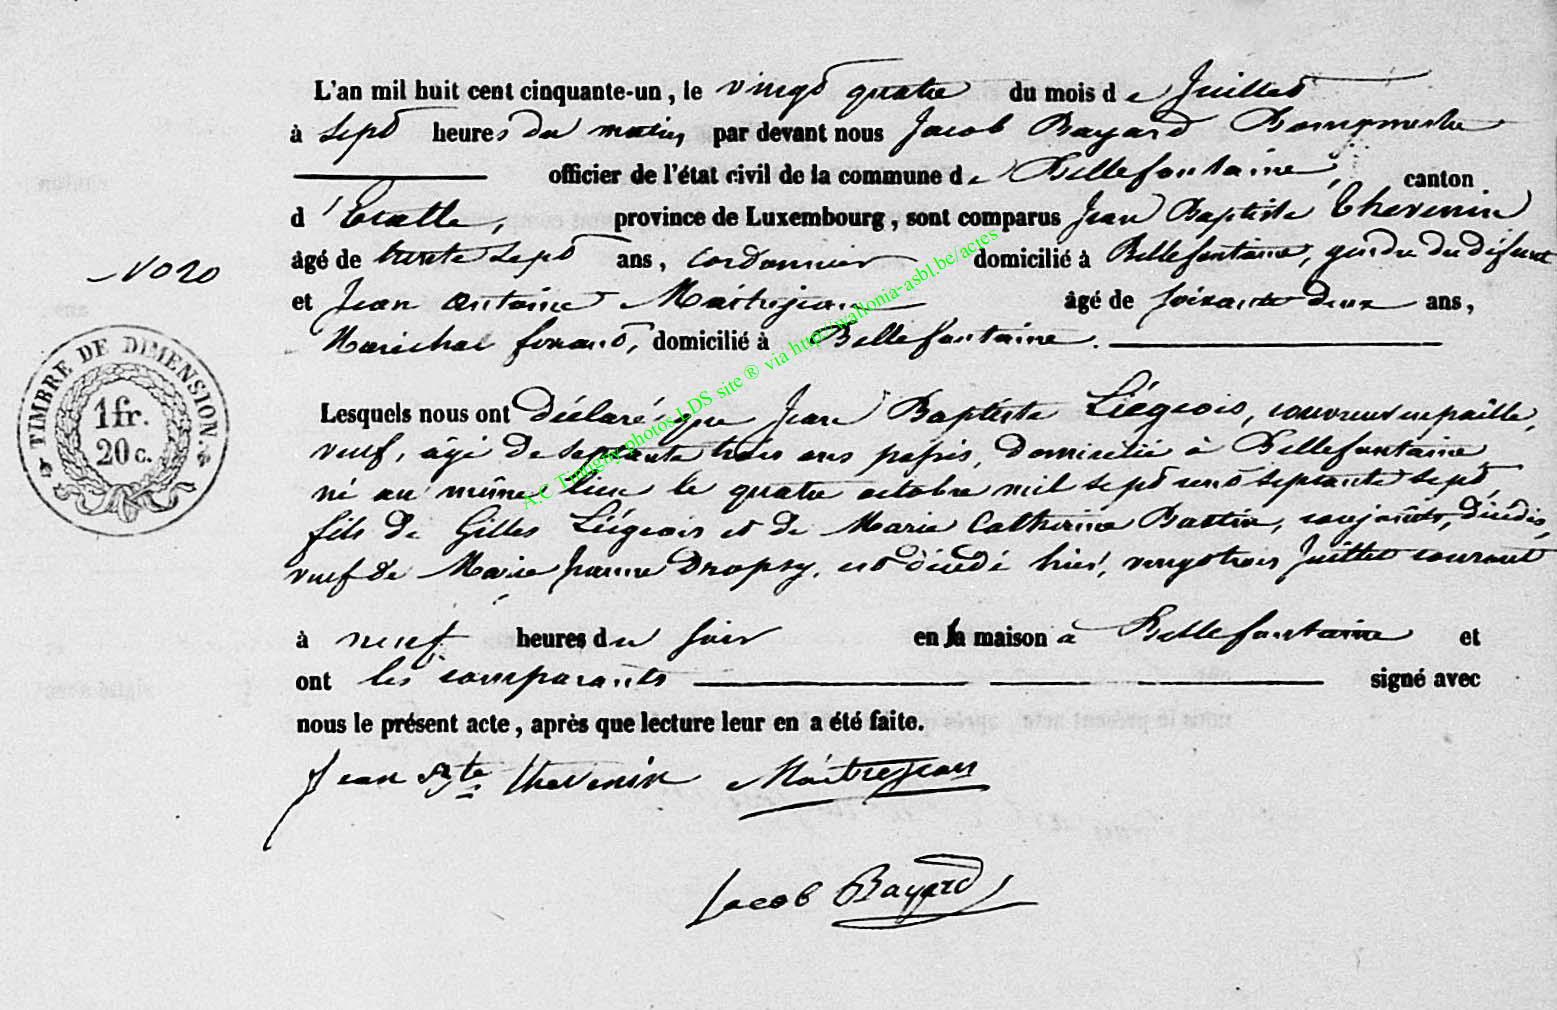 L'an mil huit cent cinquante-un, le vingt quatre du mois de Juillet
à sept heures du matin, par devant nous Jacob Bayard Bourgmestre
officier de l'état civil de la commune de Bellefontaine, canton
d'Etalle, province de Luxembourg, sont comparus Jean Baptiste Thevenin
âgé de trente sept ans, cordonnier domicilié à Bellefontaine, gendre du défunt
No 20
et Jean Antoine Maîtrejean âgé de soixante deux ans,
Maréchal ferrant, domicilié à Bellefontaine.
TIMBRE DE DIMENSION.
1 fr.
20 c.
Lesquels nous ont déclaré que Jean Baptiste Liégeois, couvreur en paille,
veuf, âgé de septante trois ans passés, domicilié à Bellefontaine
né au même lieu le quatre octobre mil sept cent septante sept
fils de Gilles Liégeois et de Marie Catherine Bastin, conjoints, décédés,
veuf de Marie Jeanne Dropsy, est décédé hier, vingt trois Juillet courant
à neuf heures du soir en sa maison à Bellefontaine et
ont les comparants signé avec
nous le présent acte, après que lecture leur en a été faite.
Jean Bte thevenin Maîtrejean
Jacob Bayard
A.C Tintigny photos LDS site ® via http://wallonia-asbl.be/actes